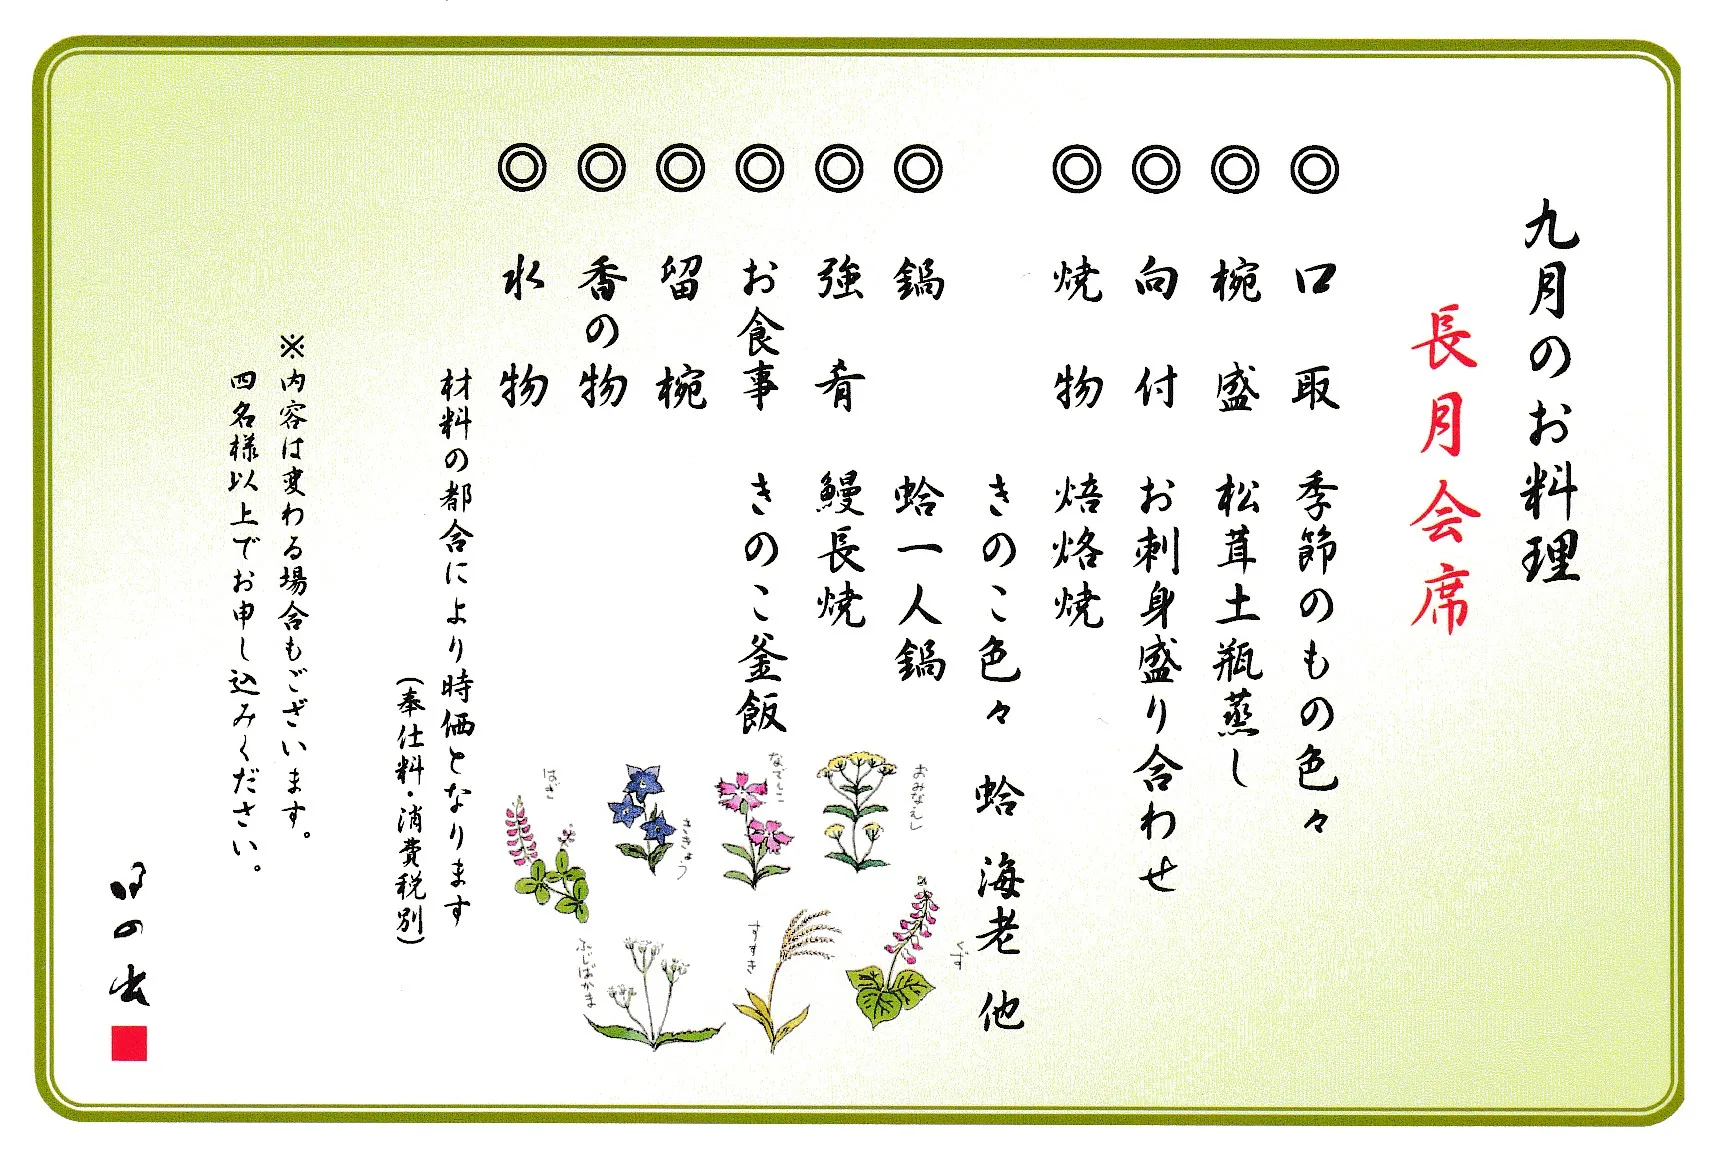 九月のお料理
長月会席
◎ 口取 季節のもの色々
◎ 椀盛 松茸土瓶蒸し
◎ 向付 お刺身盛り合わせ
◎ 焼物 焙烙焼
きのこ色々 蛤 海老 他
◎ 鍋 蛤一人鍋
◎ 強肴 鰻長焼
◎ お食事 きのこ釜飯
◎ 留椀
◎ 香の物
◎ 水物
材料の都合により時価となります
(奉仕料・消費税別)
※内容は変わる場合もございます。
四名様以上でお申し込みください。
日の出
おみなえし
なでしこ
ききょう
はぎ
くず
すすき
ふじばかま